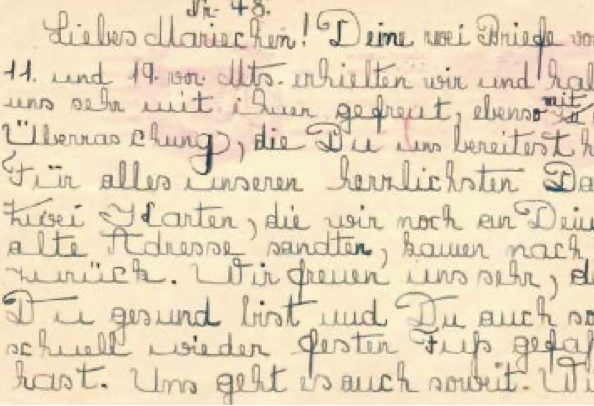 Nr. 48.
Liebes Mariechen! Deine zwei Briefe vo
11. und 19. vor. Mts. erhielten wir und hab
uns sehr mit ihnen gefreut, ebenso mit
Überraschung, die Du uns bereitest h
Für alles unseren herzlichsten Da
Zwei Karten, die wir noch an Dein
alte Adresse sandten, kamen nach
zurück. Wir freuen uns sehr, d
Du gesund bist und Du auch so
schnell wieder festen Fuß gefaß
hast. Uns geht es auch soweit. Wi